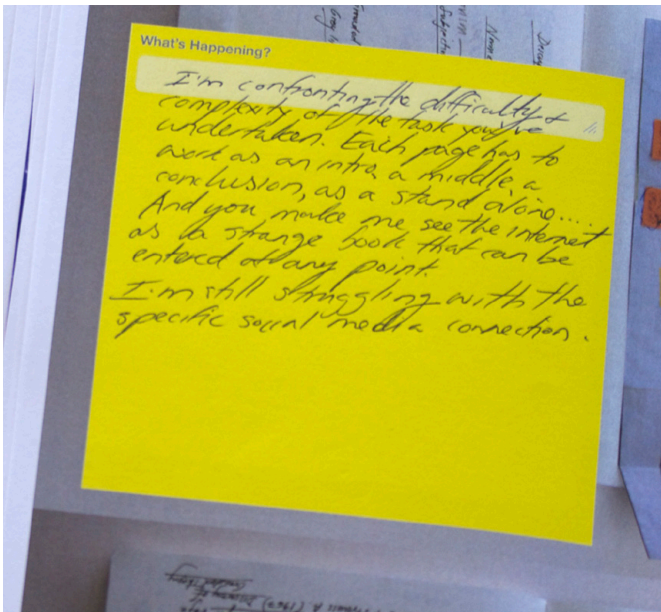 What's Happening?
I'm confronting the difficulty &
complexity of the task you've
undertaken. Each page has to
work as an intro, a middle, a
conclusion, as a stand alone....
And you make me see the internet
as a strange book that can be
entered at any point.
I'm still struggling with the
specific social media connection.
Name